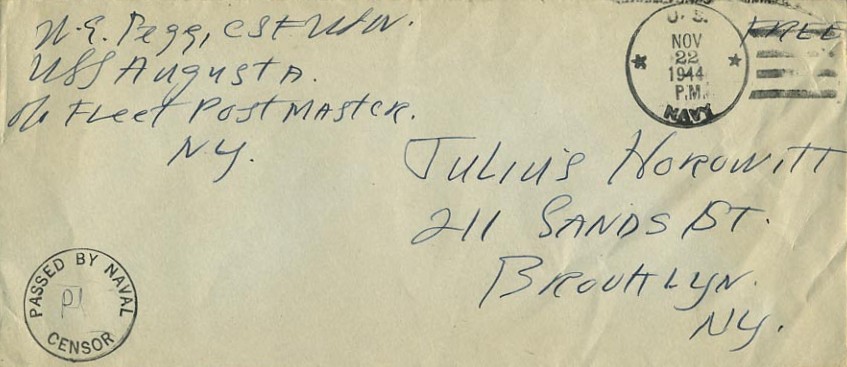 W. E. Pegg, CSF USN.
USS Augusta.
c/o Fleet PostMaster.
NY.
U. S.
NOV
22
1944
P.M.
NAVY
FREE
Julius Horowitt
211 SANDS ST.
Brooklyn.
NY.
PASSED BY NAVAL
CENSOR